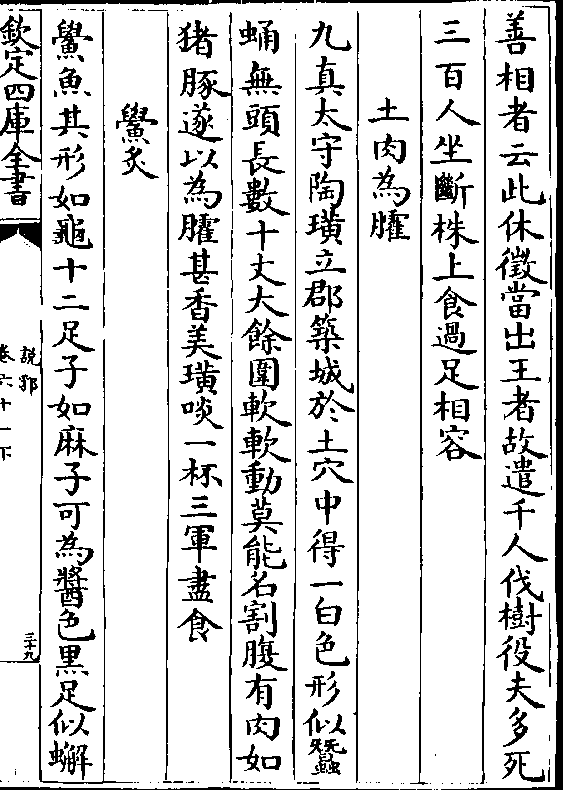 善相者云此休徵當出王者故遣千人伐樹役夫多死
三百人坐斷株上食過足相容
土肉為臛
九真太守陶璜立郡築城於土穴中得一白色形似蠶
蛹無頭長數十丈大餘圍軟軟動莫能名割腹有肉如
猪豚遂以為臛甚香美璜啖一杯三軍盡食
鱟炙
鱟魚其形如龜十二足子如麻子可為醬色黑足似蠏
欽定四庫全書
說郛
卷六十一下
三十九